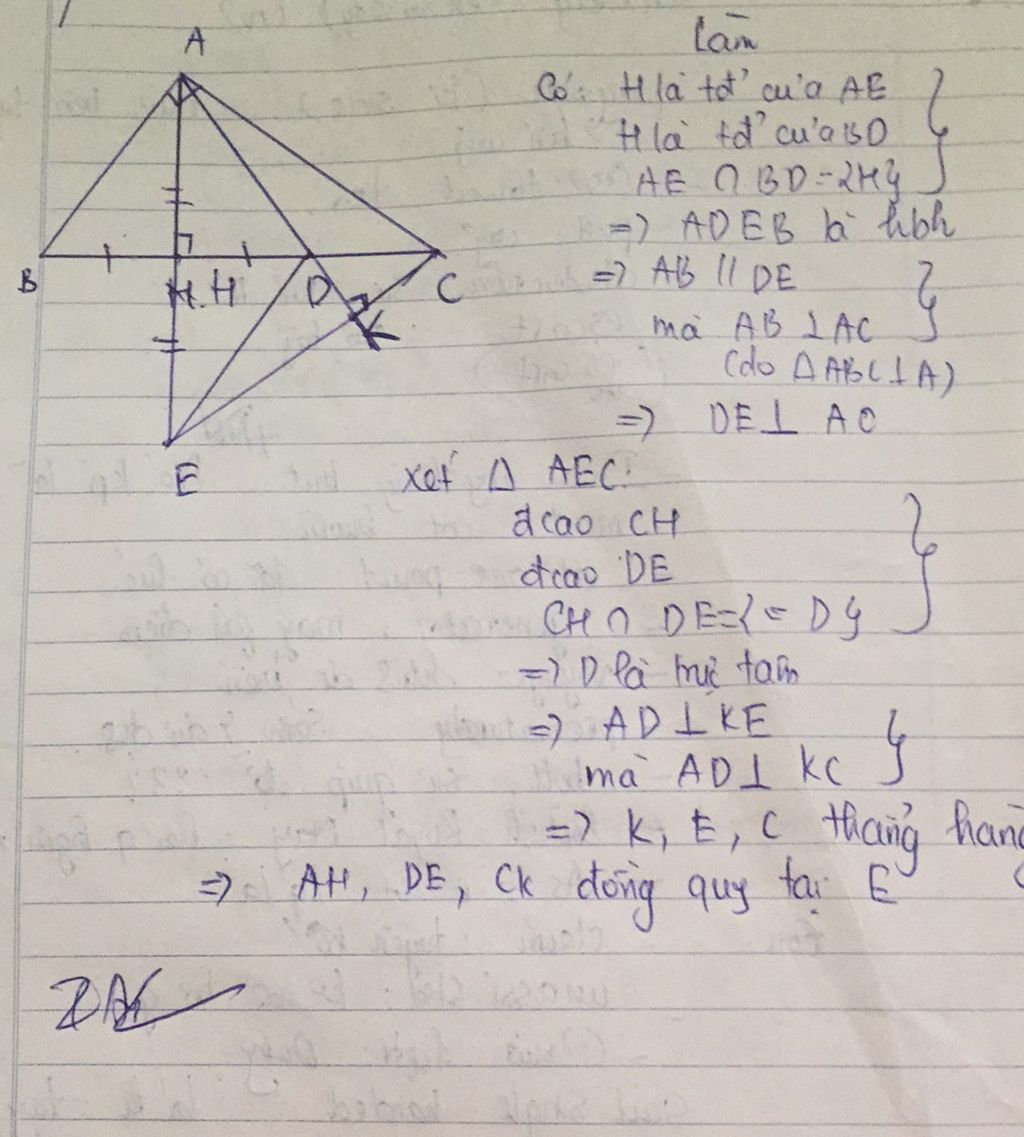 Làm
A
Có H là tđ' của AE
H là tđ' của BD
AE ∩ BD = {H}
=> ADEB là hbh
B H.H D C K
=> AB // DE
mà AB ⊥ AC
(do Δ ABC ⊥ A)
=> DE ⊥ AC
E
xét Δ AEC:
đcao CH
đcao DE
CH ∩ DE={= D}
=> D là trực tâm
=> AD ⊥ KE
mà AD ⊥ KC
=> K, E, C thẳng hàng
=> AH, DE, CK đồng quy tại E